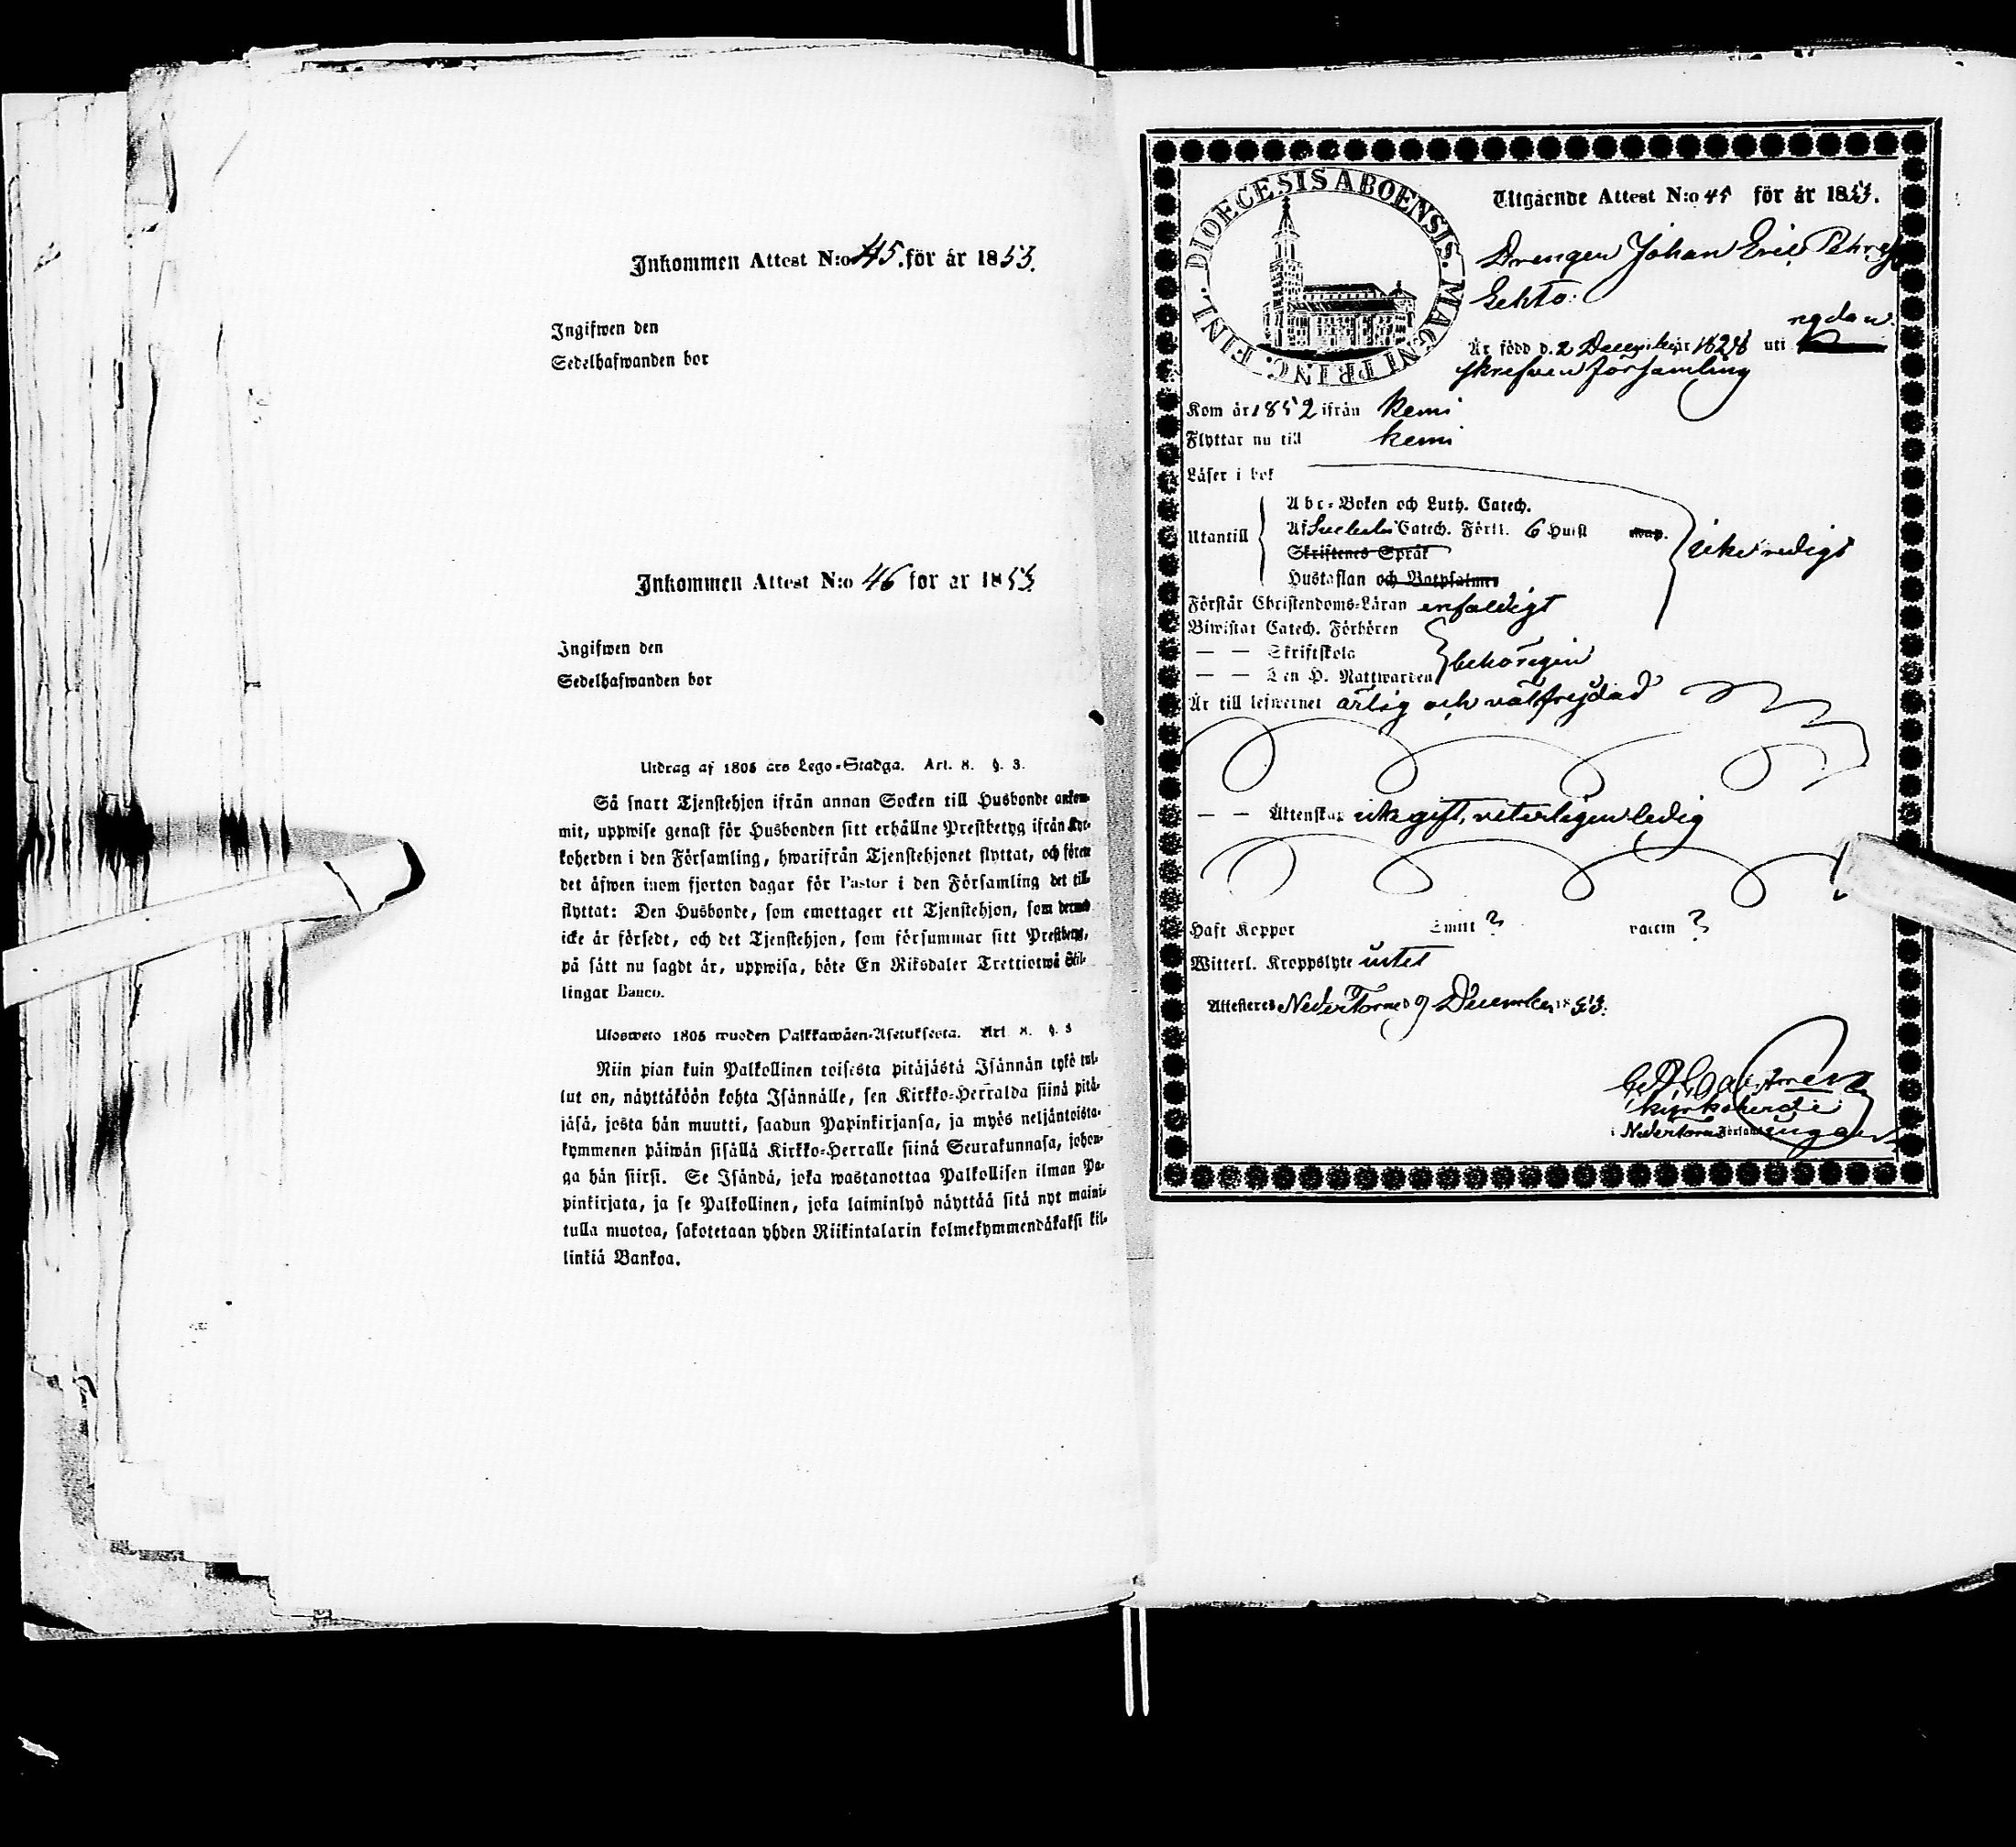 Inkommen Attest N:o 45. för år 1853.
Ingifwen den
Sedelhafwanden bor
Inkommen Attest N:o 46 för år 1853
Ingifwen den
Sedelhafwanden bor
Utdrag af 1805 års Lego-Stadga. Art. 8. §. 3.
Så snart Tjenstehjon ifrån annan Socken till Husbonde ankom-
mit, uppwise genast för Husbonden sitt erhållne Prestbetyg ifrån Kyr-
koherden i den Församling, hwarifrån Tjenstehjonet flyttat, och förete
det äfwen inom fjorton dagar för Pastor i den Församling det till-
flyttat: Den Husbonde, som emottager ett Tjenstehjon, som dermed
icke är försedt, och det Tjenstehjon, som försummar sitt Prestbetyg,
på sätt nu sagdt är, uppwisa, böte En Riksdaler Trettiotwå Skil-
lingar Banco.
Ulosweto 1805 wuoden Palkkawäen-Asetuksesta. Art. 8. §. 3
Niin pian kuin Palkollinen toisesta pitäjästä Isännän tykö tul-
lut on, näyttäköön kohta Isännälle, sen Kirkko-Herralda siinä pitä-
jäsä, josta hän muutti, saadun Papinkirjansa, ja myös neljäntoista-
kymmenen päiwän sisällä Kirkko-Herralle siinä Seurakunnasa, johon-
ga hän siirsi. Se Isändä, joka wastanottaa Palkollisen ilman Pa-
pinkirjata, ja se Palkollinen, joka laiminlyö näyttää sitä nyt maini-
tulla muotoa, sakotetaan yhden Riikintalarin kolmekymmendäkaksi kil-
linkiä Bankoa.
DIOECESIS ABOENSIS. MAGNI PRINC. FINL.
Utgående Attest N:o 45 för år 1853.
Drengen Johan Eric
Är född d. 2 December år uti
skrefven församling
Kom år 1852 ifrån Kemi
Flyttar nu till Kemi
Läser i bok
Utantill
Abc-Boken och Luth. Catech.
Af Catech. Förkl. 6 Hufst
Skriftenes Språk
Hustaflan och Botpsalmer
icke redigt
Förstår Christendoms-Läran enfaldigt
Biwistar Catech. Förhören
— — Skriftskola
— — Den H. Nattwarden
behörigen
Är till lefwernet ärlig och välfrejdad
— — Äktenskap icke gift, veterligen ledig
Haft Koppor Smitt ? vaccin ?
Witterl. Kroppslyte intet
Attesteres Neder Torneå d 9 December 1853.
Kyrkoherde
i Neder Torneå Församlingar